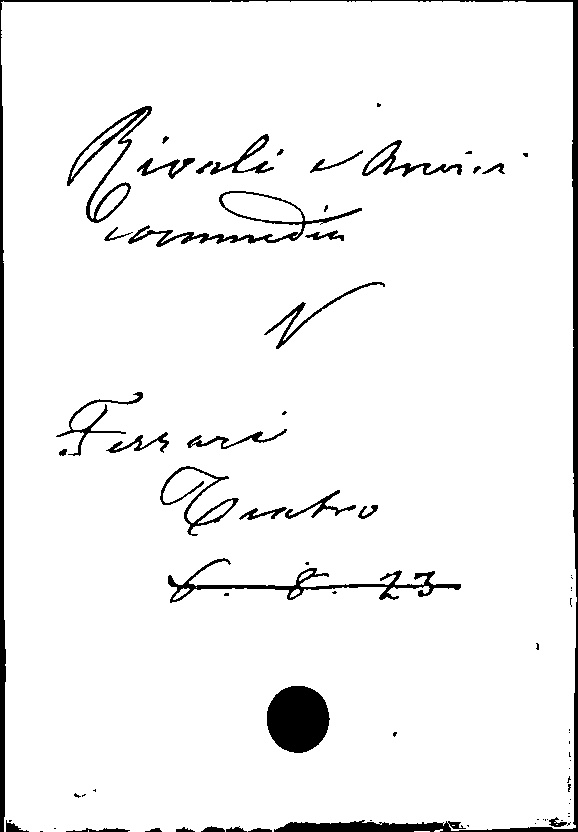 Rivali e Amici
commedia
V
Ferrari
Teatro
6. 8. 23